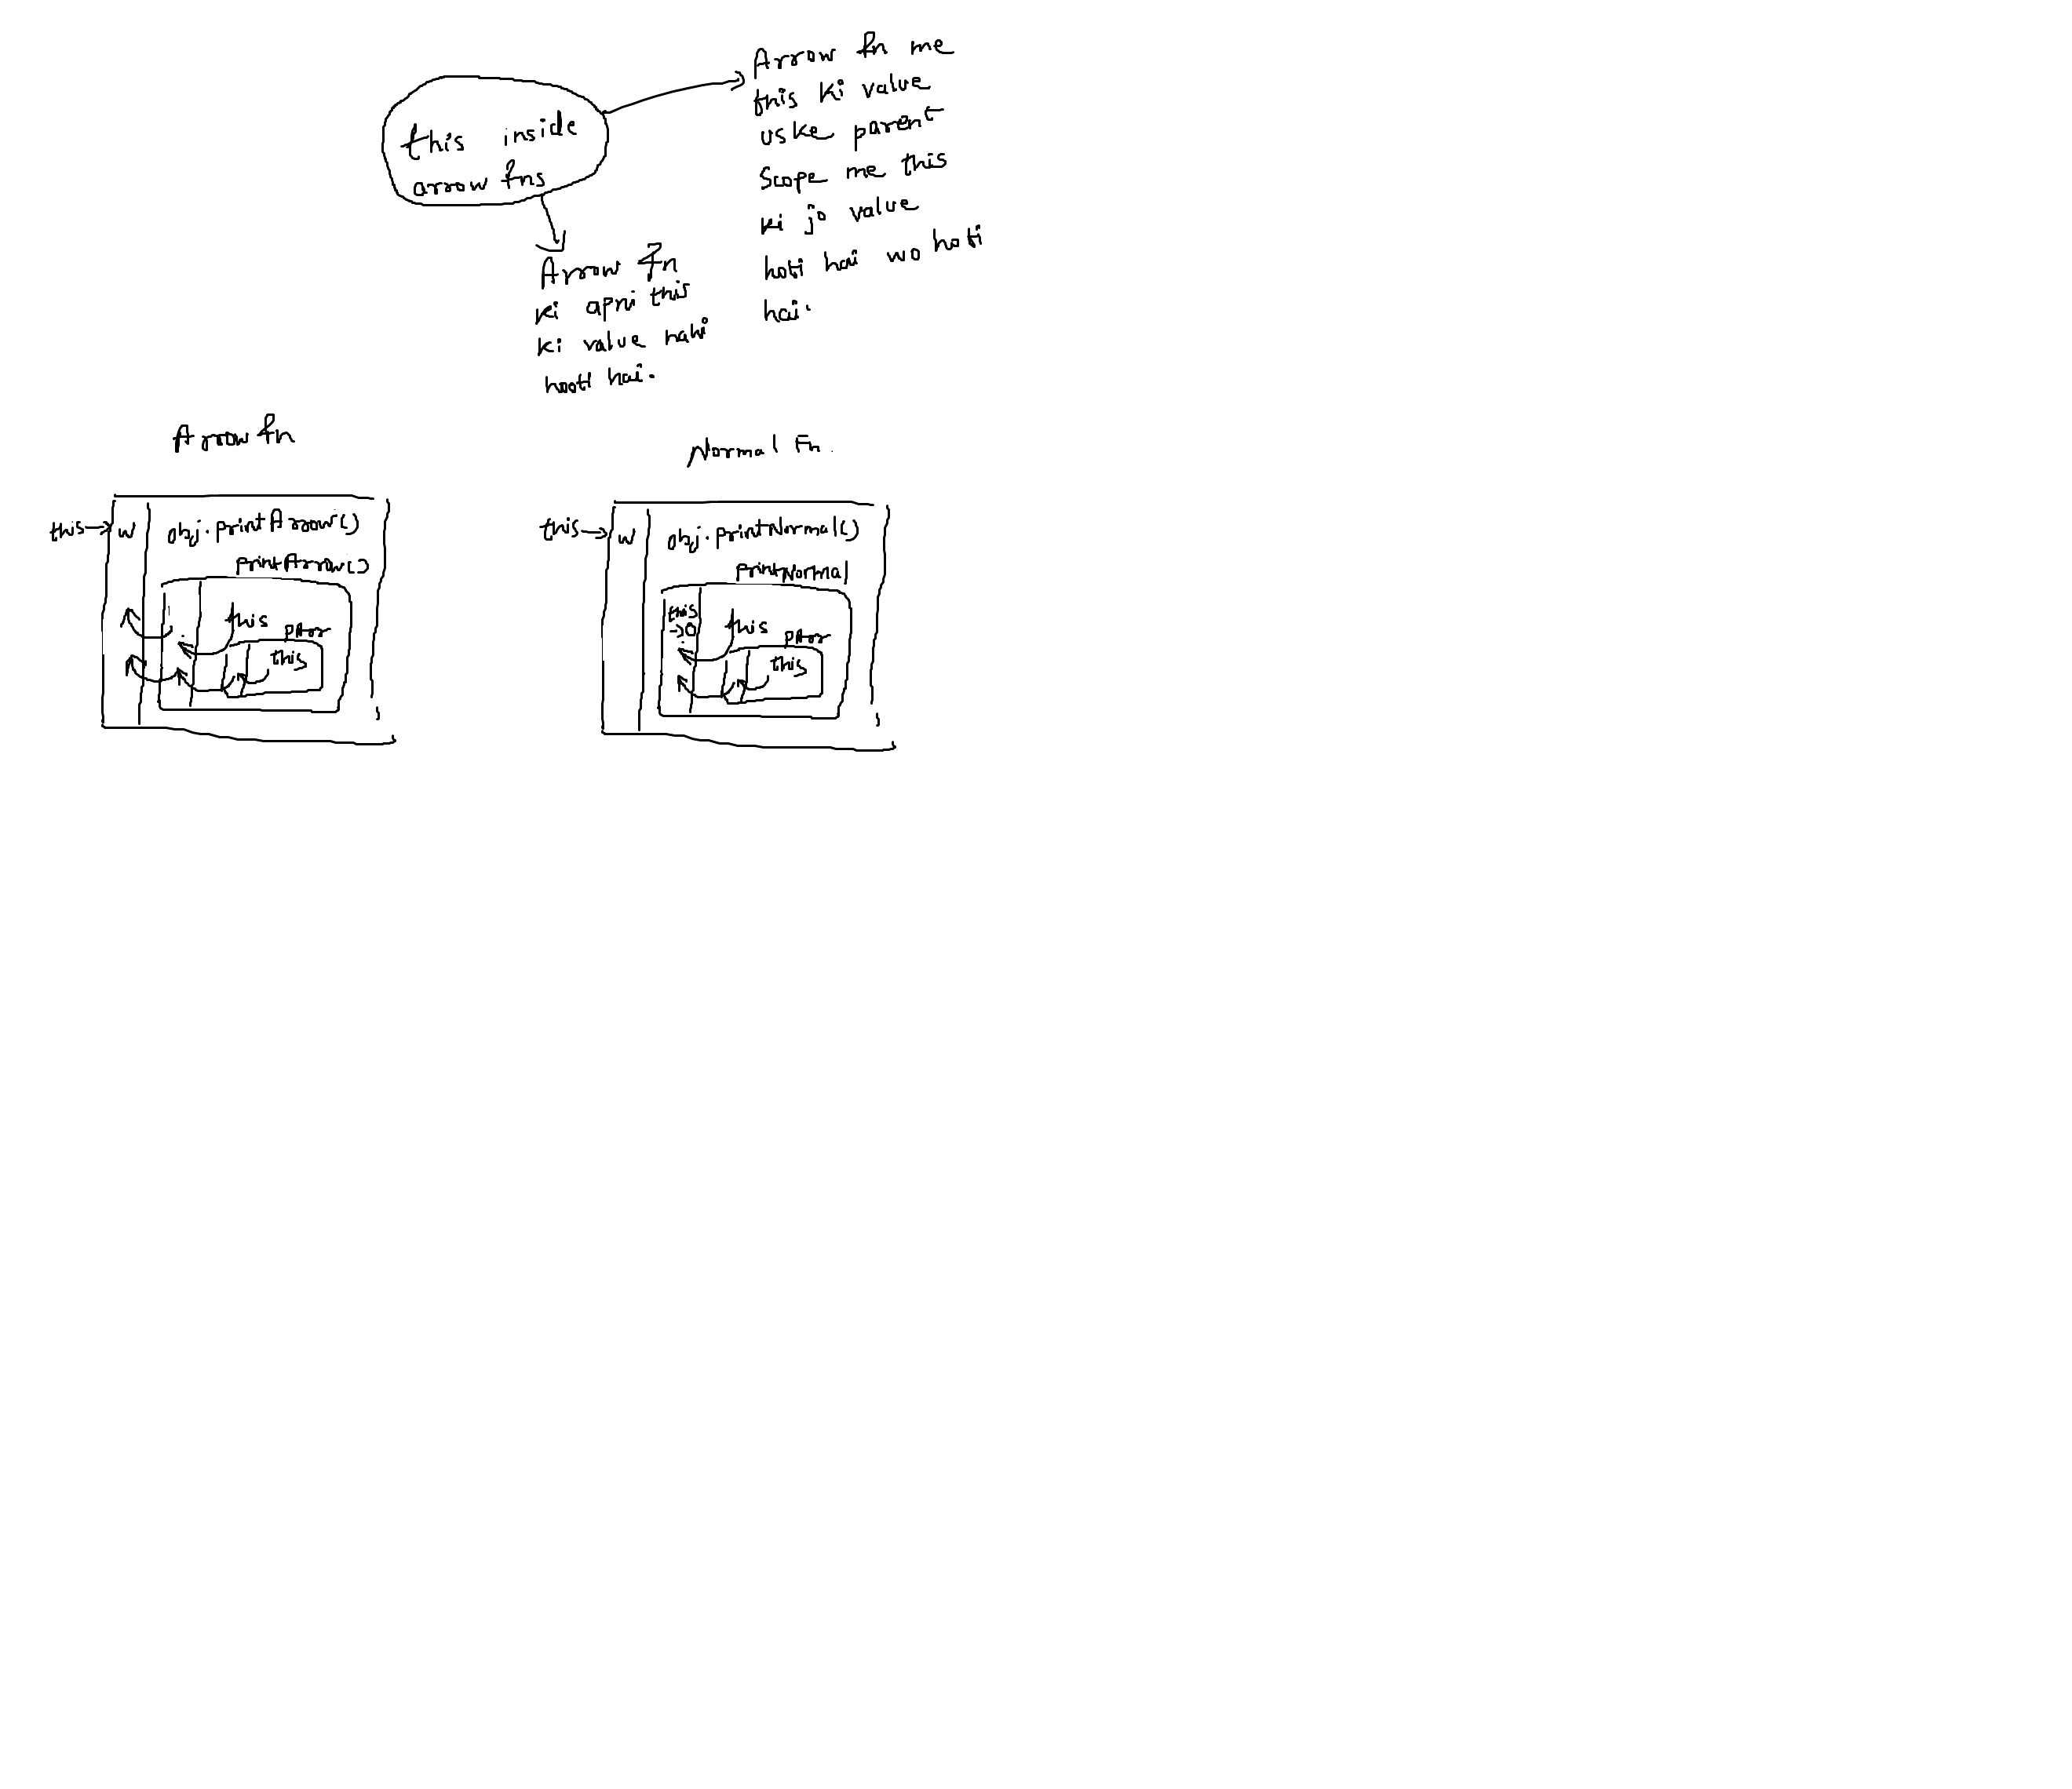 this inside
arrow fns
Arrow fn me
this ki value
uske parent
Scope me this
ki jo value
hoti hai wo hoti
hai.
Arrow fn
ki apni this
ki value nahi
hooti hai.
Arrow fn
this→ w
obj.printArrow()
printArrow()
this
pArr
this
Normal Fn.
this→ w
obj.printNormal()
printNormal
this
→O
this
pArr
this